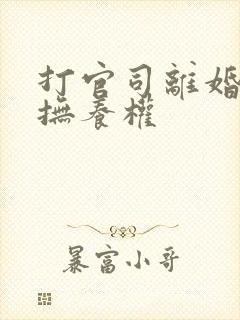 打官司離婚
撫養權
暴富小哥